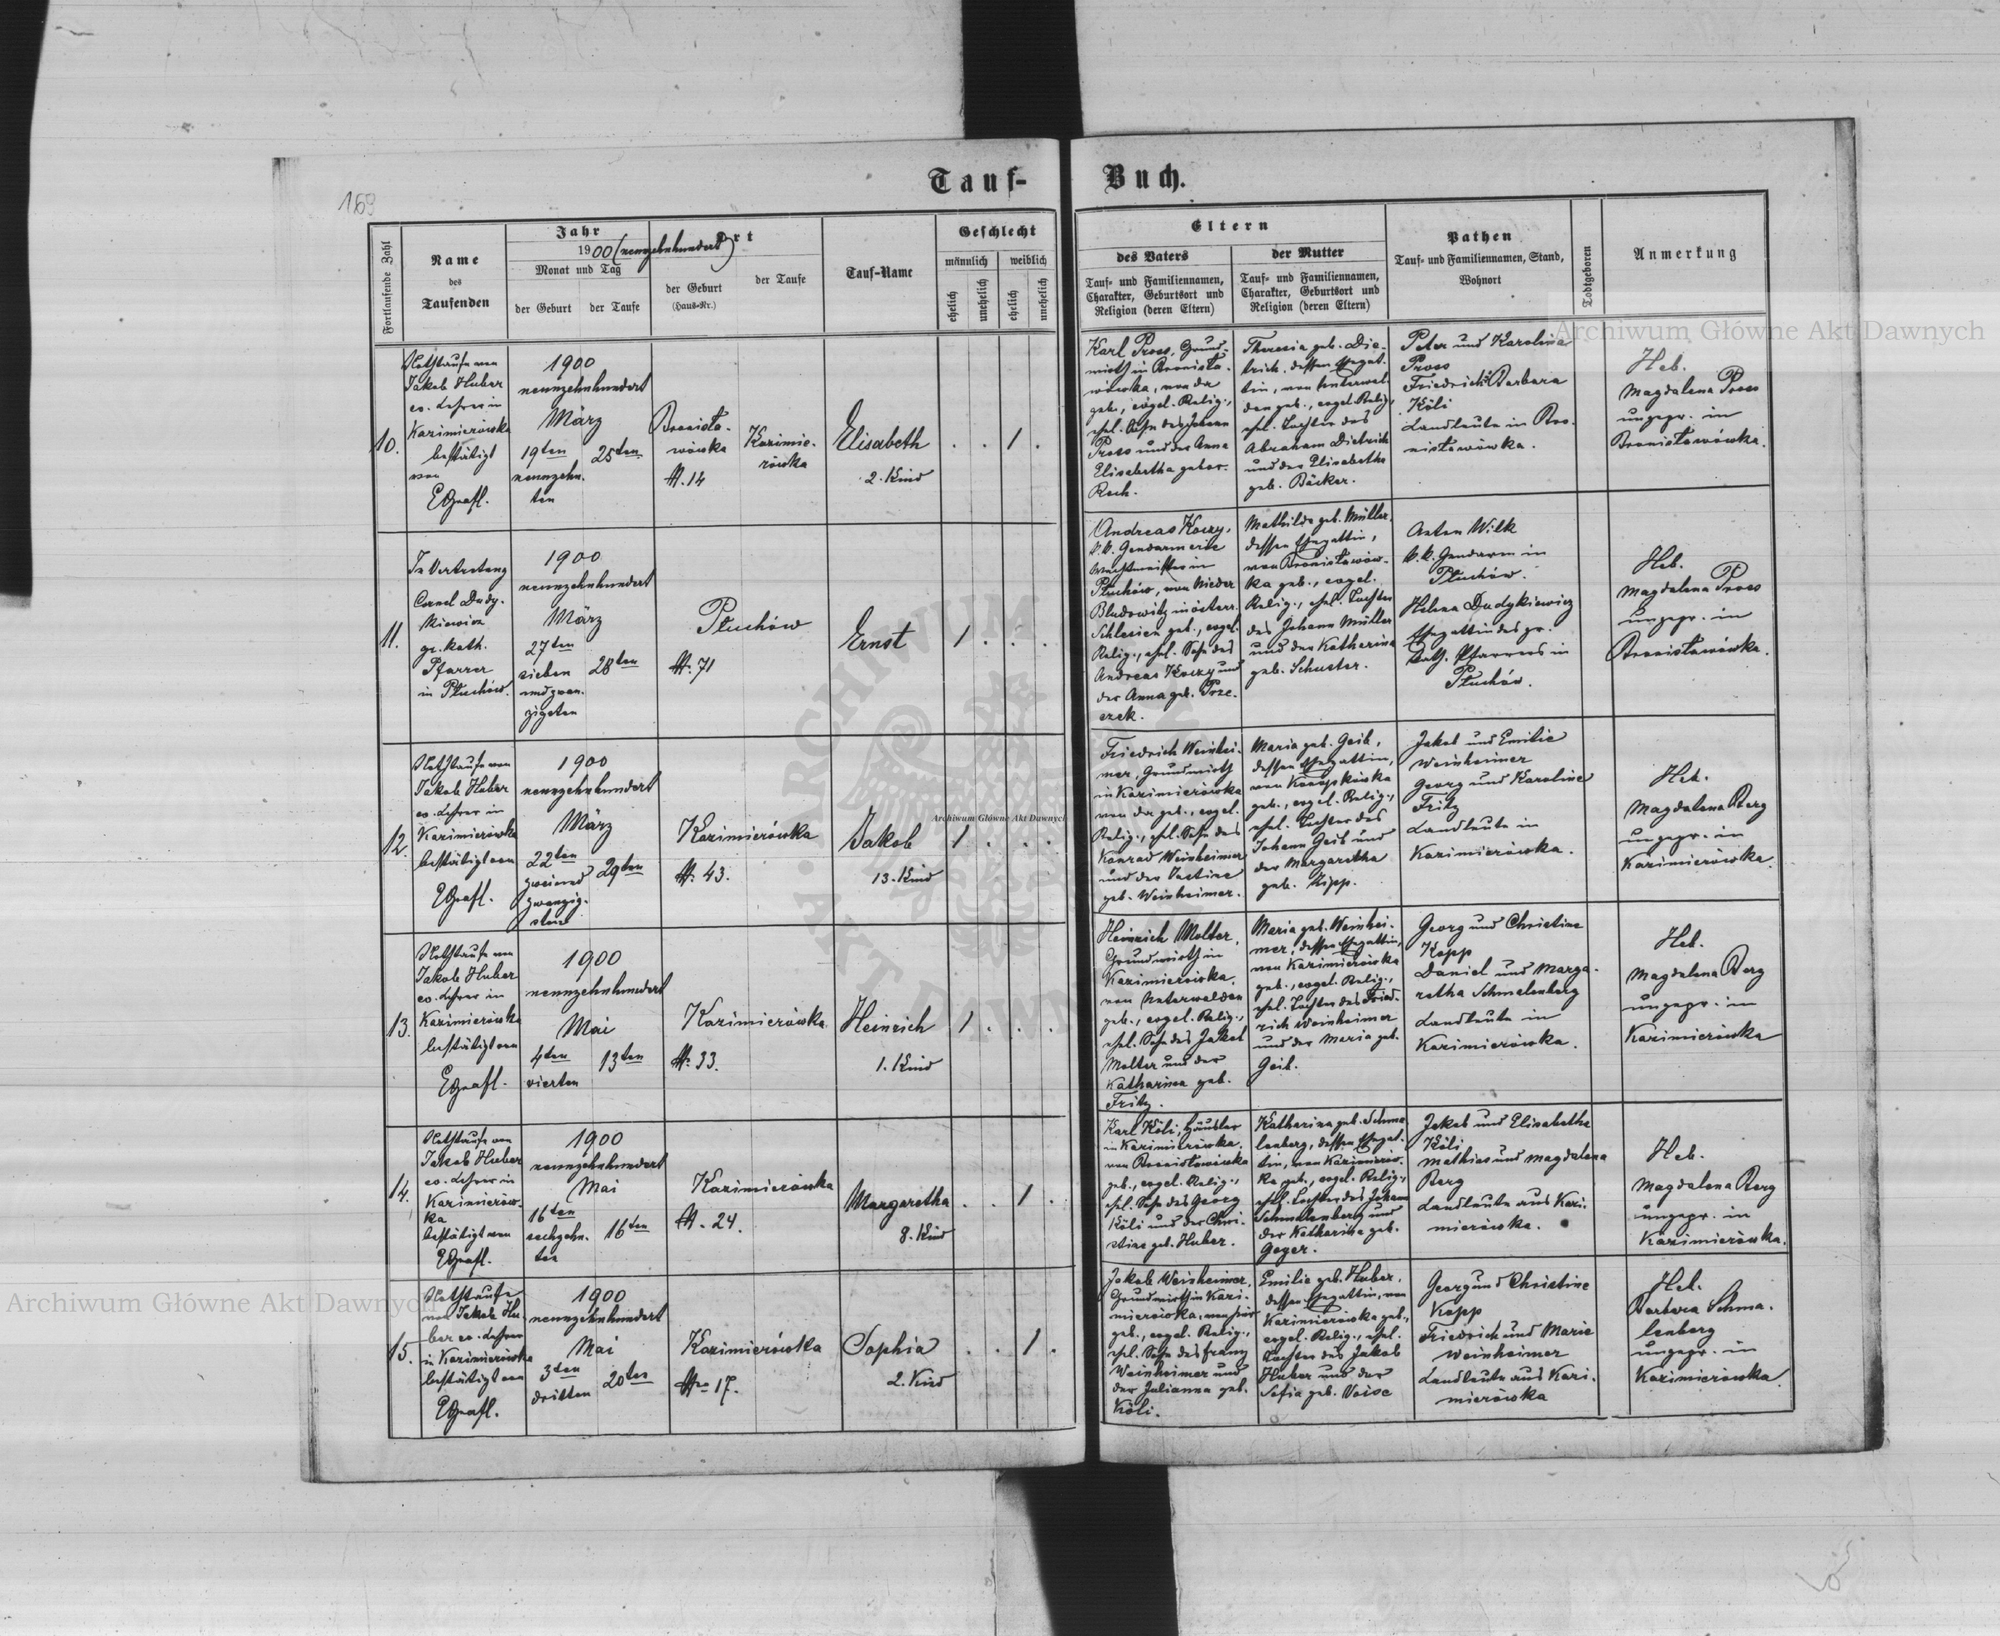 169
Tauf-
Buch.
Fortlaufende Zahl
Name
des
Taufenden
Jahr
1900 (neunzehnhundert)
Monat und Tag
der Geburt
der Taufe
Ort
der Geburt
(Haus-Nr.)
der Taufe
Tauf-Name
Geschlecht
männlich
weiblich
ehelich
unehelich
ehelich
unehelich
Eltern
des Vaters
Tauf- und Familiennamen,
Charakter, Geburtsort und
Religion (deren Eltern)
der Mutter
Tauf- und Familiennamen,
Charakter, Geburtsort und
Religion (deren Eltern)
Pathen
Tauf- und Familiennamen, Stand,
Wohnort
Todtgeboren
Anmerkung
10.
Nothtaufe von
Jakob Huber
ev. Lehrer in
Kazimierówka
bestätigt
von
1900
neunzehnhundert
März
19ten
neunzehn.
ten
25ten
Bronisła-
wówka
N. 14
Kazimie-
rówka
Elisabeth
2. Kind
. . 1 .
Karl Pross, Grund-
wirth in Bronisła-
wówka, von da
geb., evgel. Relig.,
ehl. Sohn des Johann
Pross und der Anna
Elisabetha gebor.
Rech.
Theresia geb. Die-
trich, dessen Ehegat-
tin, von Unterwal-
den geb., evgel. Relig.,
ehl. Tochter des
Abraham Dietrich
und der Elisabetha
geb. Bäcker.
Peter und Karolina
Pross
Friedrich Barbara
Köli
Landleute in Bro-
nisławówka.
Heb.
Magdalena Pross
ungepr. in
Bronisławówka.
11.
In Vertretung
Cornel Dudy-
kiewicz
gr. kath.
Pfarrer
in Płuchów.
1900
neunzehnhundert
März
27ten
sieben
undzwan-
zigsten
28ten
Płuchów
N. 71
Ernst
1 . . .
Andreas Koczy,
k.k. Gendarmerie
Wachtmeister in
Płuchów, von Nieder
Bludowitz in österr.
Schlesien geb., evgel.
Relig., ehl. Sohn des
Andreas Koczy und
der Anna geb. Prze-
czek.
Mathilde geb. Müller,
dessen Ehegattin,
von Bronisławów-
ka geb., evgel.
Relig., ehl. Tochter
des Johann Müller
und der Katharina
geb. Schuster.
Anton Wilk
k.k. Gendarm in
Płuchów.
Helena Dudykiewicz
Ehegattin des gr.
kath. Pfarrers in
Płuchów.
Heb.
Magdalena Pross
ungepr. in
Bronisławówka.
12.
Nothtaufe von
Jakob Huber
ev. Lehrer in
Kazimierówka
bestätigt von
1900
neunzehnhundert
März
22ten
zweiund
zwanzig-
sten
29ten
Kazimierówka
N. 43.
Jakob
13. Kind
1 . . .
Friedrich Weinhei-
mer, Grundwirth
in Kazimierówka
von da geb., evgel.
Relig., ehl. Sohn des
Konrad Weinheimer
und der
geb. Weinheimer.
Maria geb. Geib,
dessen Ehegattin,
von
geb., evgel. Relig.,
ehl. Tochter des
Johann Geib und
der Margaretha
geb. Kipp.
Jakob und Emilie
Weinheimer
Georg und Karoline
Fritz
Landleute in
Kazimierówka.
Heb.
Magdalena Berg
ungepr. in
Kazimierówka.
13.
Nothtaufe von
Jakob Huber
ev. Lehrer in
Kazimierówka
bestätigt von
1900
neunzehnhundert
Mai
4ten
vierten
13ten
Kazimierówka
N. 33.
Heinrich
1. Kind
1 . . .
Heinrich Molter,
Grundwirth in
Kazimierówka,
von Unterwalden
geb., evgel. Relig.,
ehl. Sohn des Jakob
Molter und der
Katharina geb.
Fritz.
Maria geb. Weinhei-
mer, dessen Ehegattin,
von Kazimierówka
geb., evgel. Relig.,
ehl. Tochter des Fried-
rich Weinheimer
und der Maria geb.
Geib.
Georg und Christine
Kopp
Daniel und Marga-
retha Schmalenberg
Landleute in
Kazimierówka.
Heb.
Magdalena Berg
ungepr. in
Kazimierówka
14.
Nothtaufe von
Jakob Huber
ev. Lehrer in
Kazimierów-
ka
bestätigt von
1900
neunzehnhundert
Mai
16ten
sechzehn-
ten
16ten
Kazimierówka
N. 24.
Margaretha
8. Kind
. . 1 .
Karl Köli, Häusler
in Kazimierówka,
von Bronisławówka
geb., evgel. Relig.,
ehl. Sohn des Georg
Köli und der Chri-
stine geb. Huber.
Katharina geb. Schma-
lenberg, dessen Ehegat-
tin, von Kazimierów-
ka geb., evgel. Relig.,
ehl. Tochter des Johann
Schmalenberg und
der Katharina geb.
Geyer.
Jakob und Elisabetha
Köli
Mathias und Magdalena
Berg
Landleute aus Kazi-
mierówka.
Heb.
Magdalena Berg
ungepr. in
Kazimierówka.
15.
Nothtaufe
von Jakob Hu-
ber ev. Lehrer
in Kazimierówka
bestätigt von
1900
neunzehnhundert
Mai
3ten
dritten
20ten
Kazimierówka
Nro 17.
Sophia
2. Kind
. . 1 .
Jakob Weinheimer,
Grundwirth in Kazi-
mierówka, von hier
geb., evgel. Relig.,
ehl. Sohn des Franz
Weinheimer und
der Julianna geb.
Köli.
Emilie geb. Huber,
dessen Ehegattin, von
Kazimierówka geb.,
evgel. Relig., ehl.
Tochter des Jakob
Huber und der
Sofia geb. Weise
Georg und Christine
Kopp
Friedrich und Marie
Weinheimer
Landleute aus Kazi-
mierówka
Heb.
Barbara Schma-
lenberg
ungepr. in
Kazimierówka.
Archiwum Główne Akt Dawnych
Archiwum Główne Akt Dawnych
Archiwum Główne Akt Dawnych